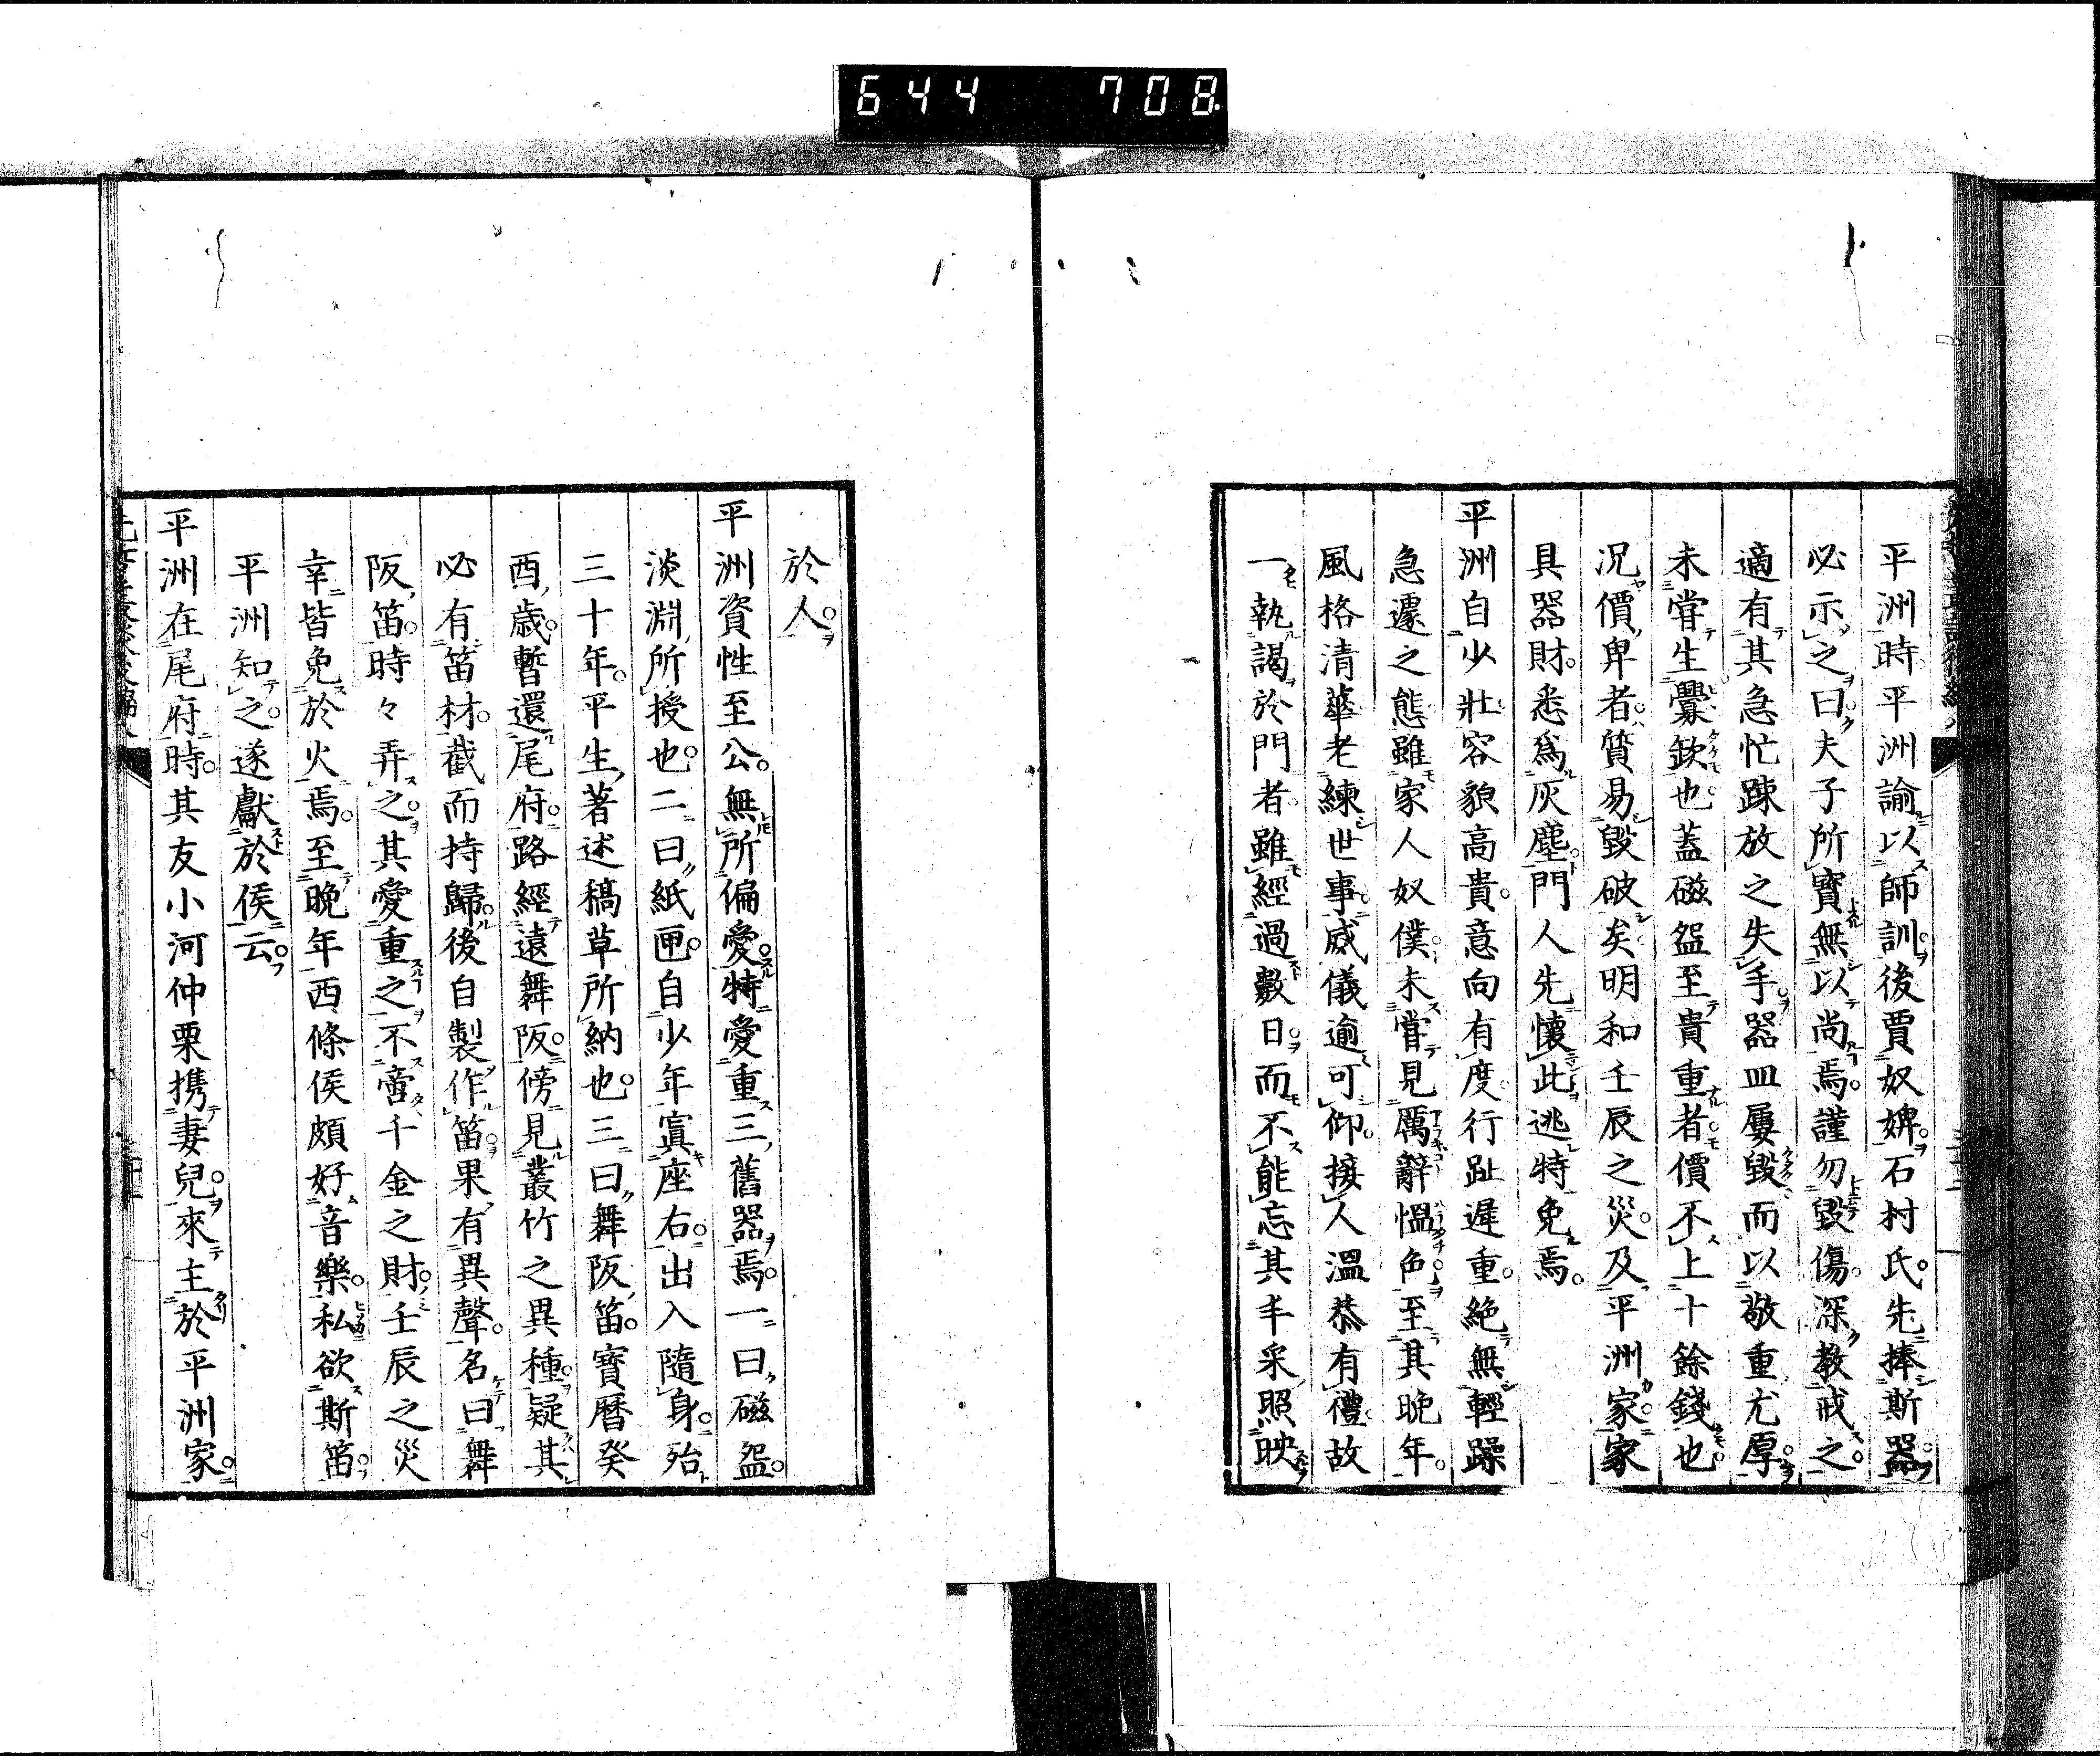 644 708
平洲時平洲諭以師訓後賈奴婢石村氏先捧斯器
必示之曰夫子所寳無以尚焉謹勿毀傷深教戒之
適有其急忙踈放之失手器皿屡毀而以敬重尤厚
未甞生釁欸也蓋磁盌至貴重者價不上十餘錢也
况價卑者質易毀破矣明和壬辰之災及平洲家家
具器財悉爲灰塵門人先懷此逃特免焉
平洲自少壯容貌高貴意向有度行趾遲重絶無輕躁
急遽之態雖家人奴僕未甞見厲辭愠色至其晩年
風格清華老練世事威儀逾可仰接人溫恭有禮故
一執謁於門者雖經過數日而不能忘其丰采照映
於人
平洲資性至公無所偏愛特愛重三舊器焉一曰磁盌
淡淵所授也二曰紙匣自少年寘座右出入隨身殆
三十年平生著述稿草所納也三曰舞阪笛寳暦癸
酉歳暫還尾府路經遠舞阪傍見叢竹之異種疑其
必有笛材截而持歸後自製作笛果有異聲名曰舞
阪笛時々弄之其愛重之不啻千金之財壬辰之災
幸皆免於火焉至晩年西條侯頗好音樂私欲斯笛
平洲知之遂獻於侯云
平洲在尾府時其友小河仲栗携妻兒來主於平洲家